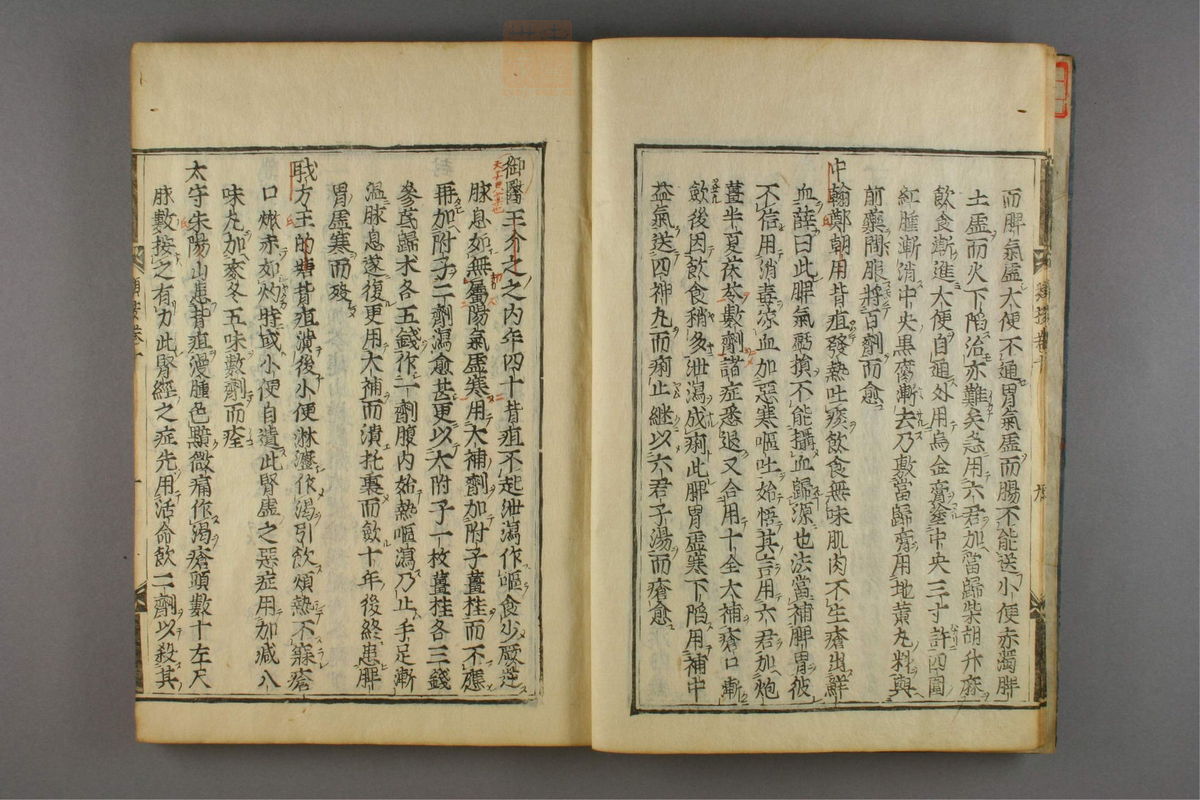 而脾氣虛大便不通胃氣虛而腸不能送小便赤濁脾
土虛而火下陷治亦難矣急用六君加當歸柴胡升麻
飲食漸進大便自通外用烏金膏塗中央三寸許四圍
紅腫漸消中央黒腐漸去乃敷當歸膏用地黃丸料與
前藥間服將百劑而愈
中翰鄭朝用背疽發熱吐痰飲食無味肌肉不生瘡出鮮
血薛曰此脾氣虧損不能攝血歸源也法當補脾胃彼
不信用消毒凉血加惡寒嘔吐始悟其言用六君加炮
薑半夏茯苓數劑諸症悉退又合用十全大補瘡口漸
歛後因飲食稍多泄瀉成痢此脾胃虛寒下陷用補中
益氣送四神丸而痢止継以六君子湯而瘡愈
御醫王介之之内年四十背疽不起泄瀉作嘔食少厥逆
脉息如無屬陽氣虛寒用大補劑加附子薑桂而不應
再加附子二劑瀉愈甚更以大附子一枚薑桂各三錢
參芪歸术各五錢作一劑腹内始熱嘔瀉乃止手足漸
溫脉息遂復更用大補而潰托裏而歛十年後終患脾
胃虛寒而殁
職方王的塘背疽潰後小便淋瀝作渴引飲煩熱不寐瘡
口燉赤如灼時或小便自遺此腎虛之惡症用加減八
味丸加麥冬五味數劑而痊
太守朱陽山患背疽漫腫色黯微痛作渴瘡頭數十左尺
脉數按之有力此腎經之症先用活命飲二劑以殺其